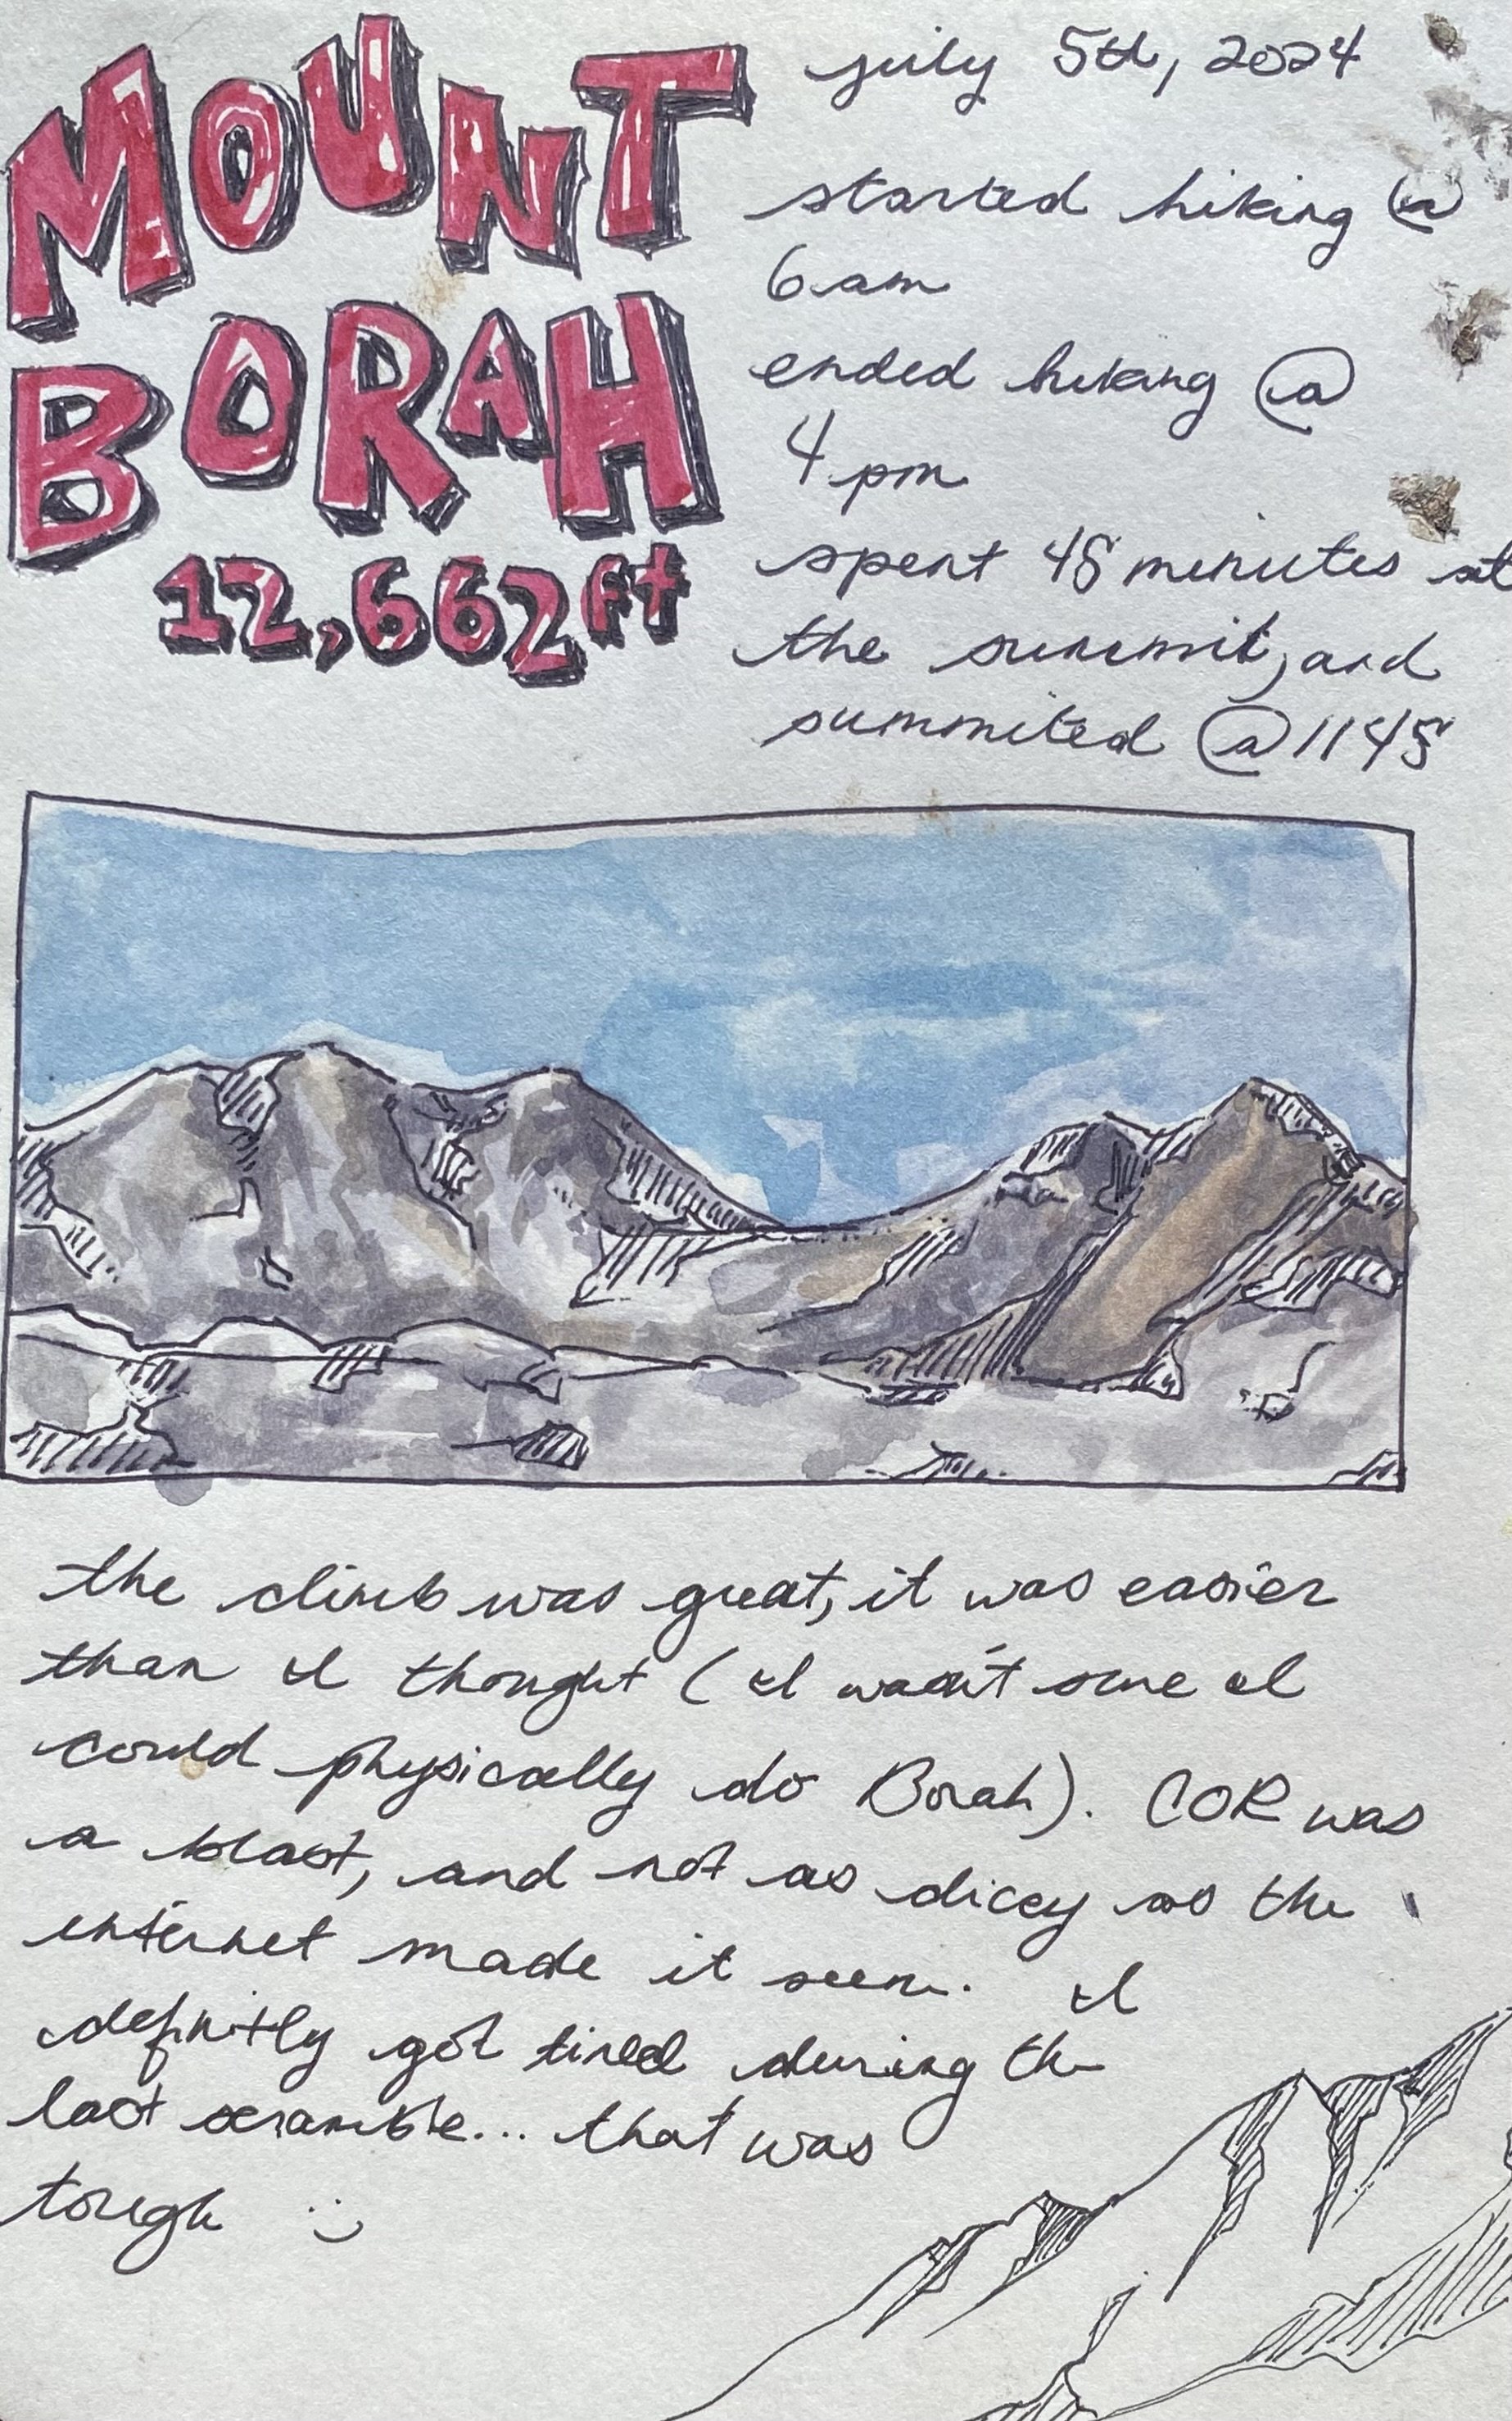 MOUNT
BORAH
12,662ft
july 5th, 2024
started hiking @
6am
ended hiking @
4 pm
spent 45 minutes at
the summit, and
summited @ 1145
the climb was great, it was easier
than I thought (I wasn't sure I
could physically do Borah). COR was
a blast, and not as dicey as the
internet made it seem. I
definitly got tired during the
last scramble... that was
tough :)